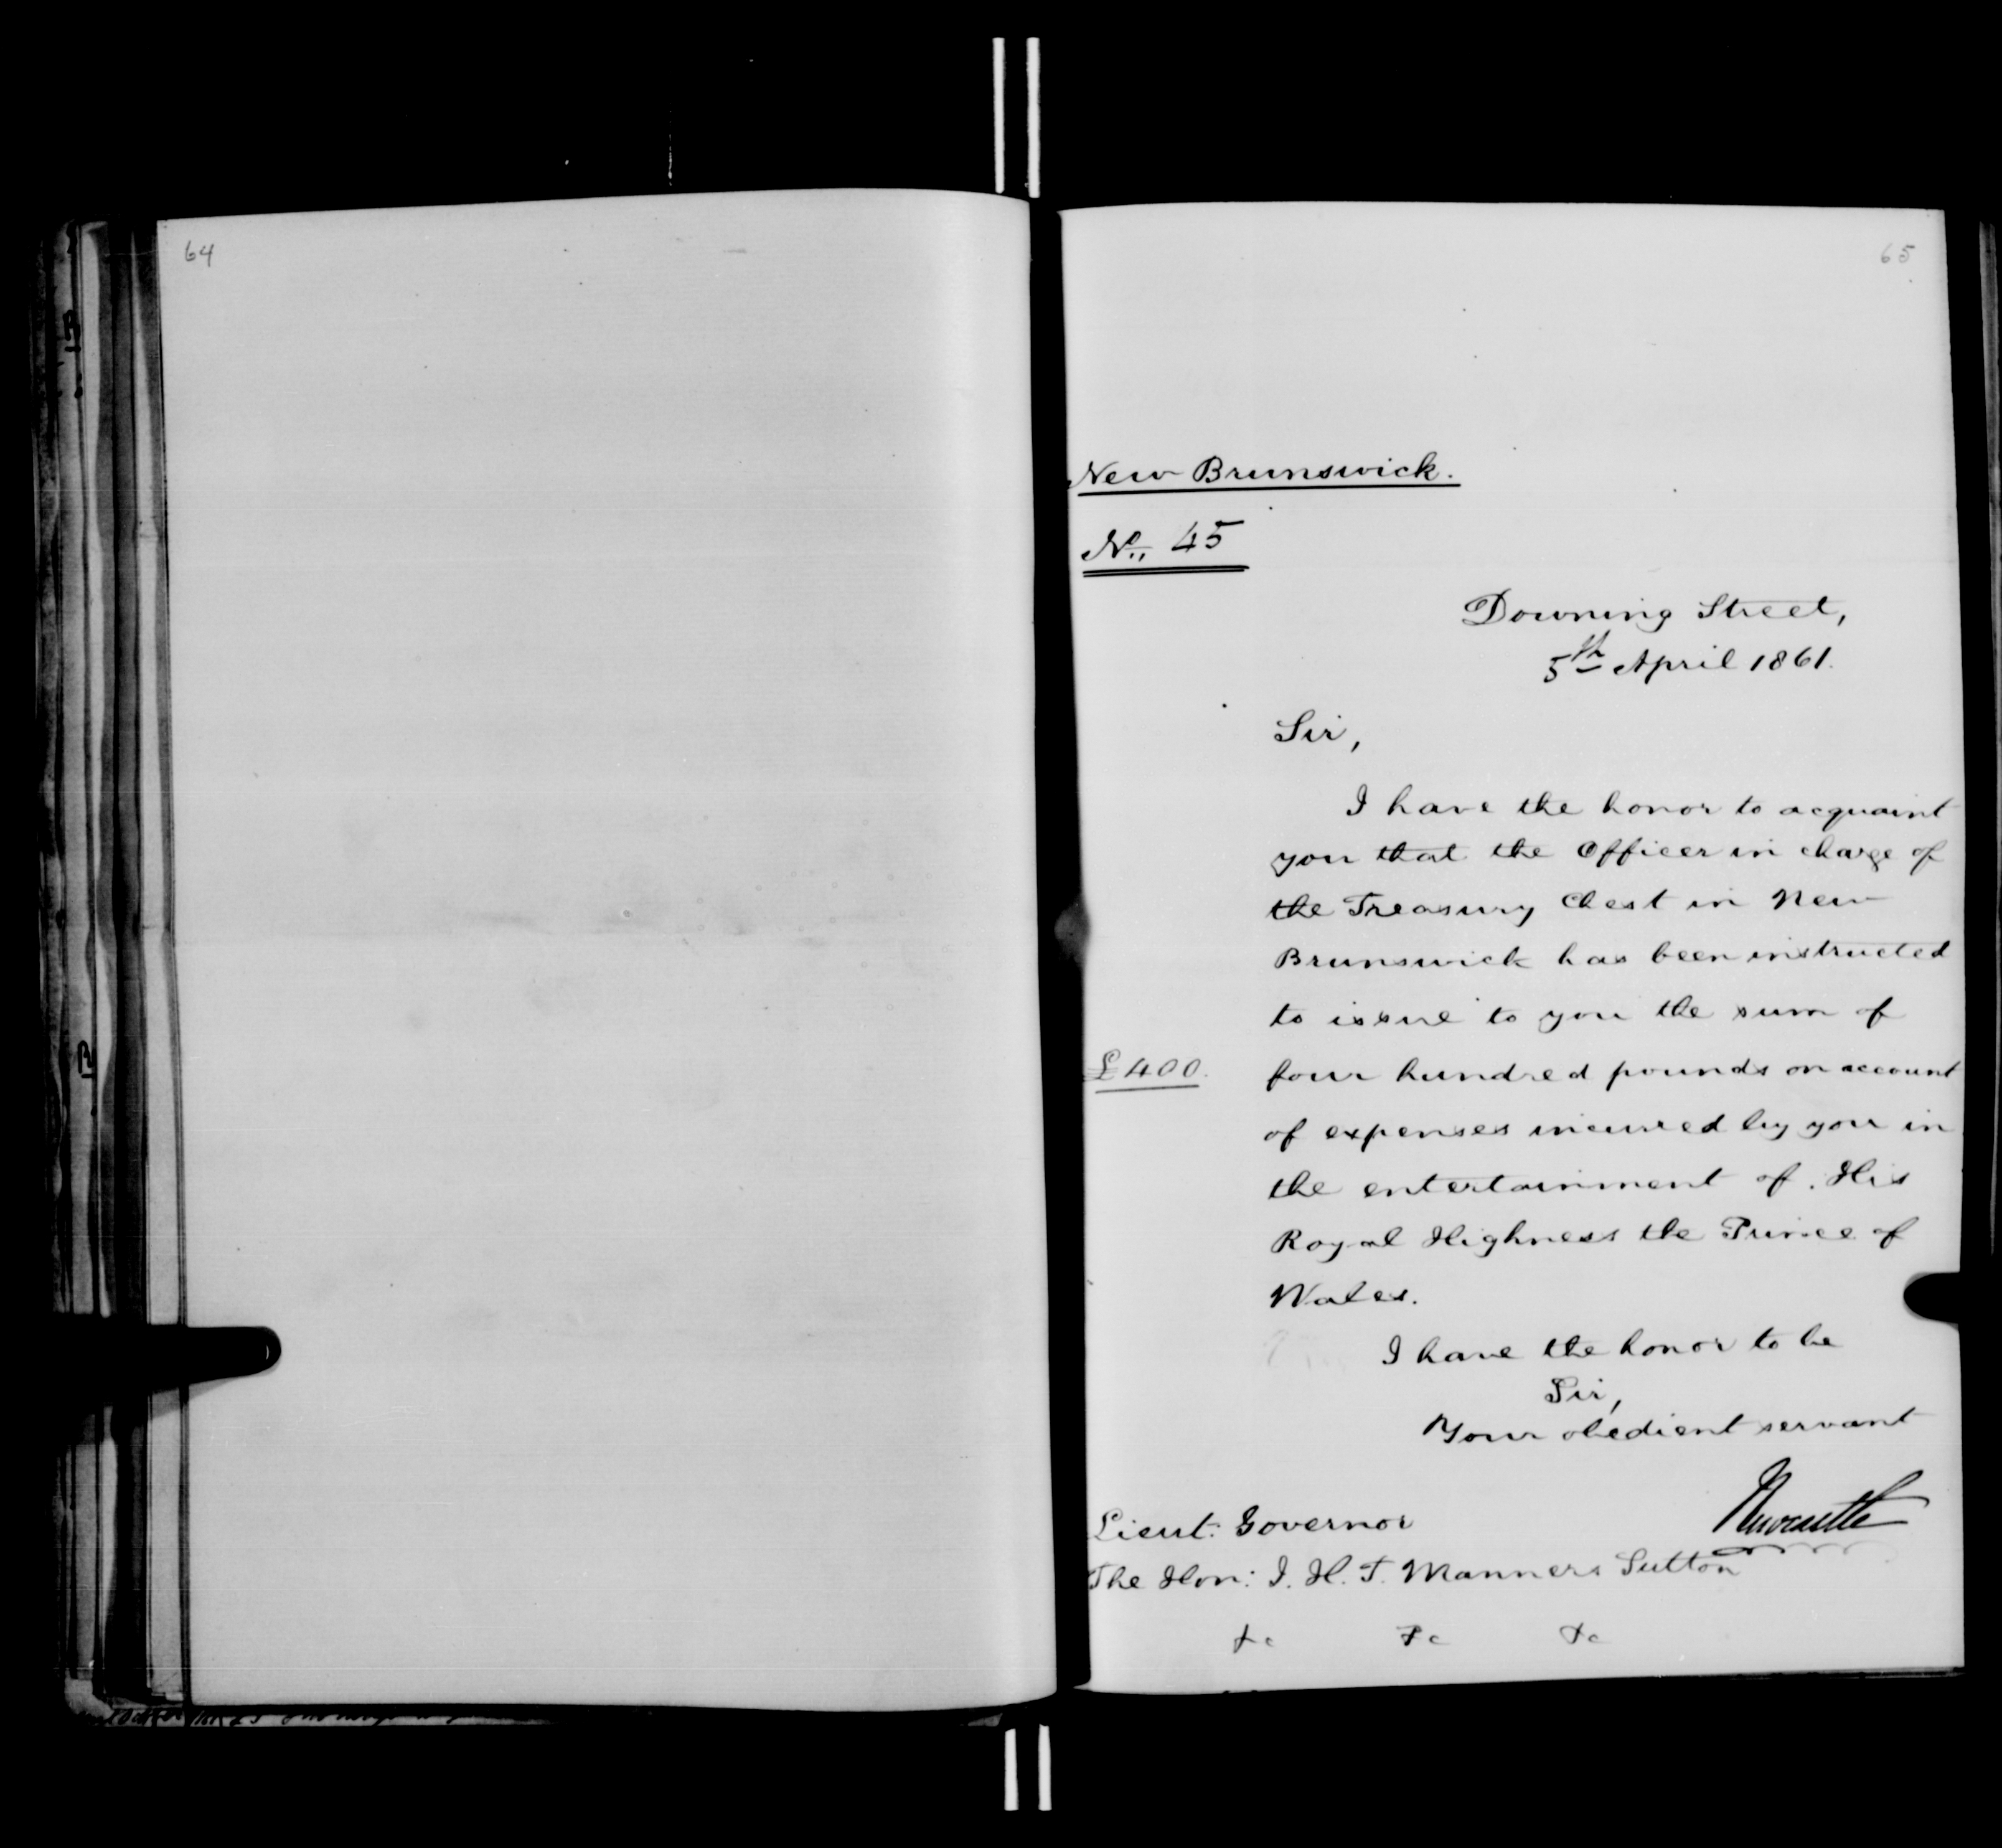 64
65
New Brunswick.
No. 45
Downing Street,
5th April 1861.
Sir,
I have the honor to acquaint
you that the Officer in charge of
the Treasury Chest in New
Brunswick has been instructed
to issue to you the sum of
£400.
four hundred pounds on account
of expenses incurred by you in
the entertainment of His
Royal Highness the Prince of
Wales.
I have the honor to be
Sir,
Your obedient servant
Newcastle
Lieut: Governor
The Hon: J. H. T. Manners Sutton
&c &c &c